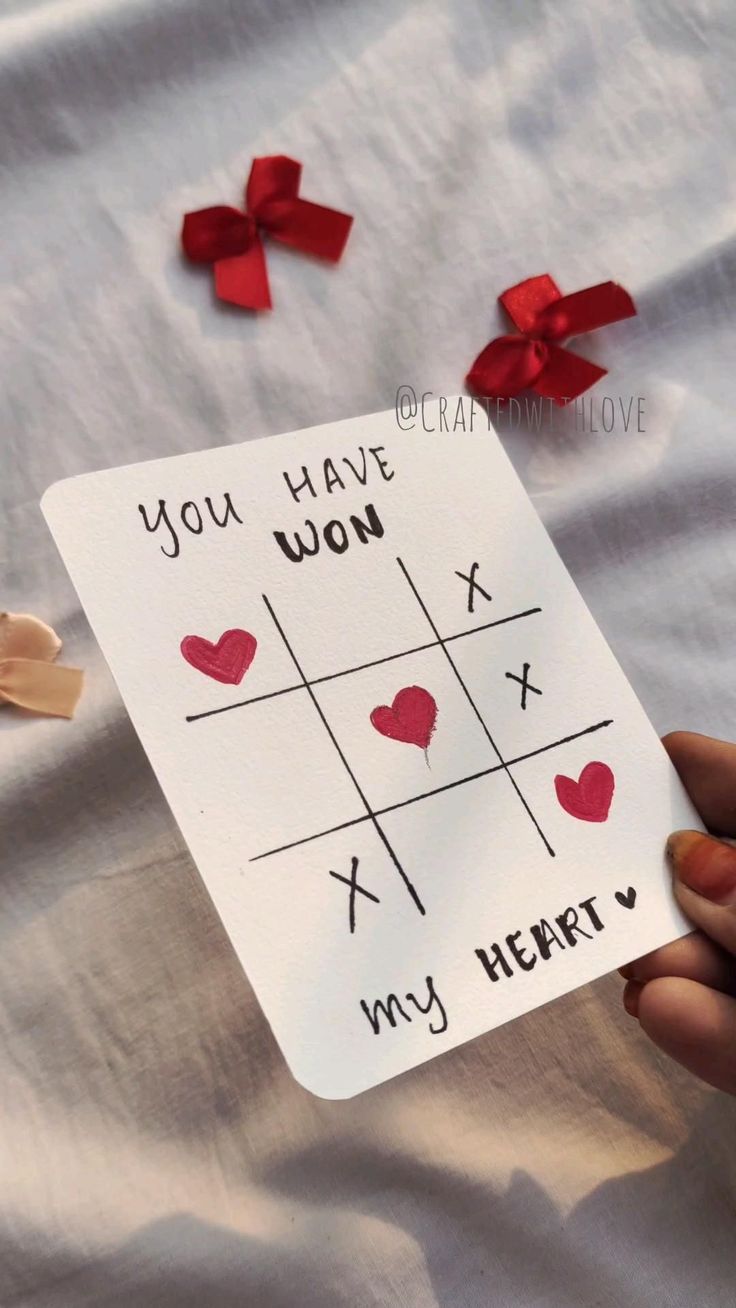 @CRAFTEDWITHLOVE
YOU HAVE
WON
X
X
X
my HEART